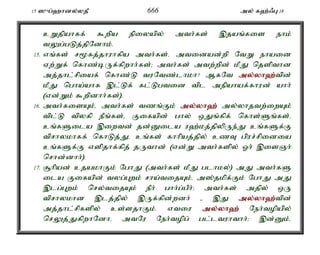 15 ஸுப்ஹானல்லதீ 666 அல் கஹ்ஃபு 18
உறுதியாகக் கூறிய நிலையில் அவர்கள் இதயங்களை நாம்
வலுப்படுத்தினோம்.
15. எங்கள் சமூகத்தாராகிய அவர்கள், அவனையன்றி வேறு நாயனை
ஏற்றுக் கொண்டிருக்கிறார்கள்; அவர்கள் அவற்றின் மீது தெளிவான
அத்தாட்சியைக் கொண்டு வரவேண்டாமா? ஆகவே அல்லாஹ்வின்
மீது பொய்யாக இட்டுக் கட்டுபவனை விட அநியாயக்காரன் யார்
(என்றும் கூறினார்கள்).
16. அவர்களையும், அவர்கள் வணங்கும் அல்லாஹ் அல்லாதவற்றையும்
விட்டு விலகி நீங்கள், குகையின் பால் ஒதுங்கிக் கொள்ளுங்கள்,
உங்களுடைய இறைவன் தன்னுடைய ரஹ்மத்திலிருந்து உங்களுக்கு
விசாலமாகக் கொடுத்து, உங்கள் காரியத்தில் உணவு பிரச்சினையை
உங்களுக்கு எளிதாக்கித் தருவான் (என்று அவர்களில் ஓர் இளைஞர்
சொன்னார்).
17. சூரியன் உதயமாகும் போது (அவர்கள் மீது படாமல்) அது அவர்களு
டைய குகையின் வலப்புறம் சாய்வதையும், அஸ்தமிக்கும் போது அது
இடப்புறம் செல்வதையும் நீர் பார்ப்பீர்; அவர்கள் அதில் ஒரு
விசாலமான இடத்தில் இருக்கின்றனர் - இது அல்லாஹ்வின்
அத்தாட்சிகளில் உள்ளதாகும். எவரை அல்லாஹ் நேர்வழியில்
செலுத்துகிறானோ, அவரே நேர்வழிப் பட்டவராவார்; இன்னும்,